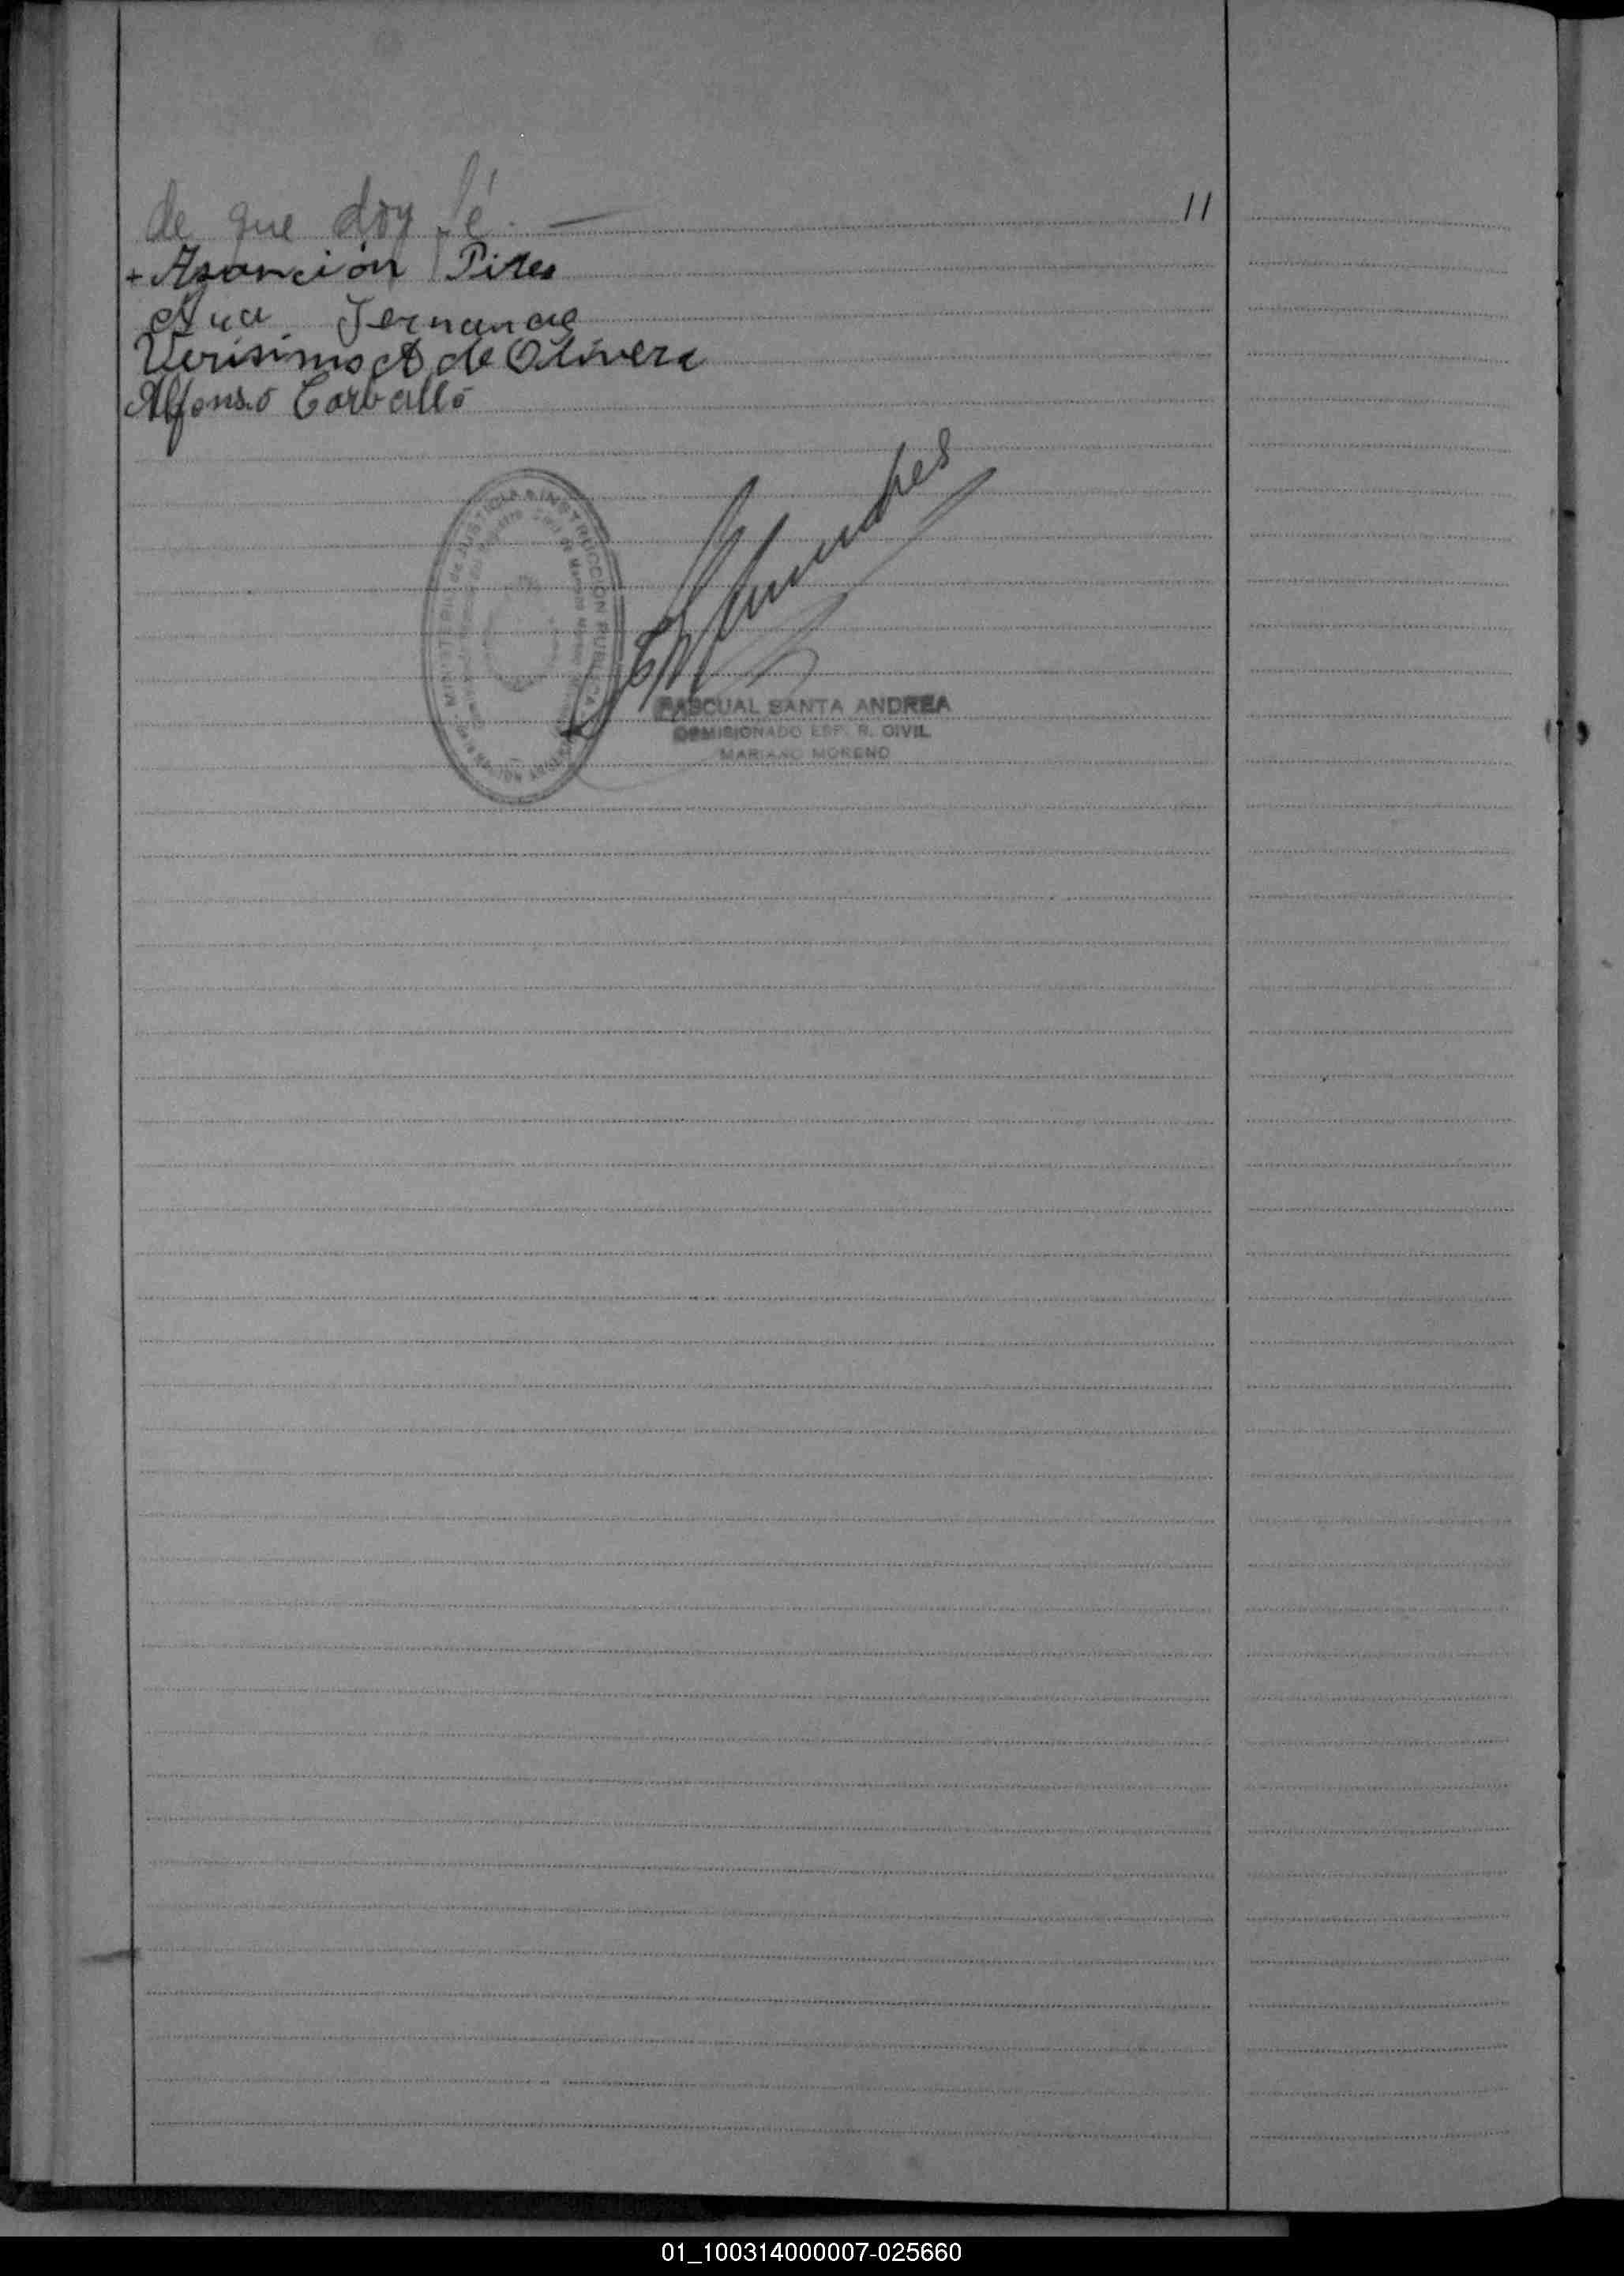 de que doy fé. — 11
+ Asanción Pires
Ana Fernande
Verisimo A de Olivera
Alfonso Carvallo
MINISTERIO de JUSTICIA e INSTRUCCION PUBLICA
PASCUAL SANTA ANDREA
COMISIONADO ESP. R. CIVIL
MARIANO MORENO
01_100314000007-025660